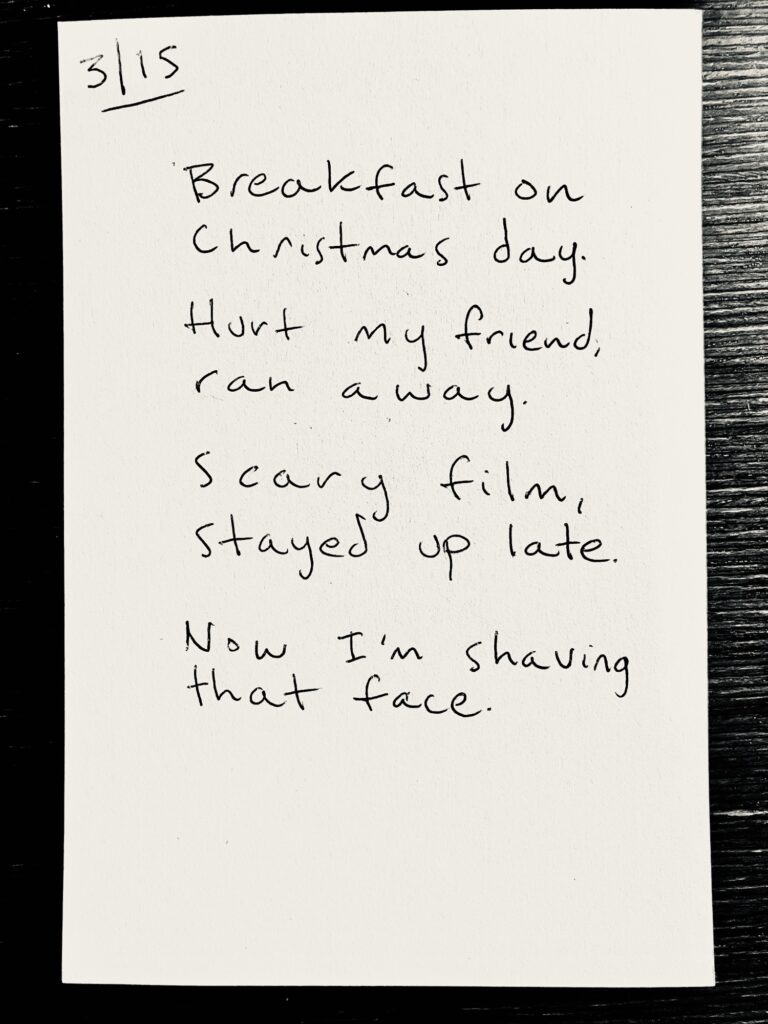 3/15
Breakfast on
Christmas day.
Hurt my friend,
ran away.
Scary film,
stayed up late.
Now I'm shaving
that face.